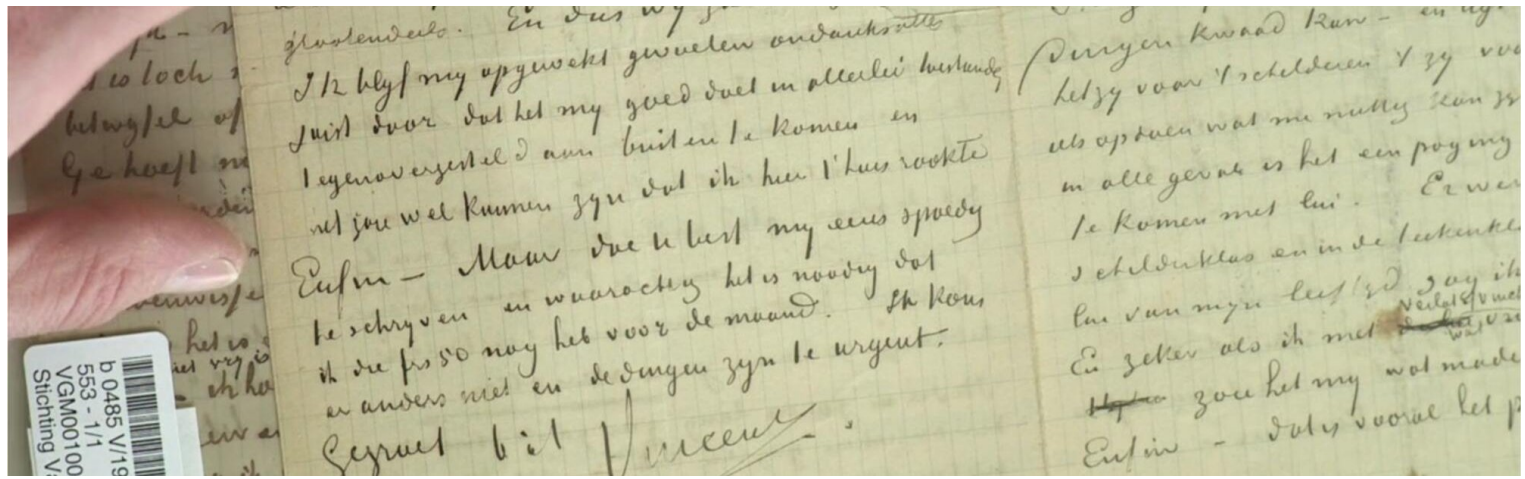 is toch
betwyfel of
Ge hoeft
het is
niet vry is
ik ho
b 0485 V/19
553 - 1/1
VGM00100
Stichting Va
grootendeels. En dus wy
Ik blyf my opgewekt gevoelen ondanks alles
Juist door dat het my goed doet in allerlei
tegenovergesteld aan buiten te komen en
zou wel kunnen zyn dat ik hier t'huis raakte
Enfin – Maar doe U best my eens spoedig
te schryven en waarachtig het is noodig dat
ik die frs 50 nog heb voor de maand. Ik
er anders niet en de dingen zyn te urgent.
Gegroet b.à.t. Vincent.
dingen kwaad kan – en
hetzy voor 't schilderen 't zy voo
als opdoen wat me nuttig kan zy
in alle geval is het een poging
te komen met lui. Er wer
schilderklas en in de teekenkl
lui van myn leeftyd zag ik
En zeker als ik met
zou het my wat made
Enfin – dat is vooral het p